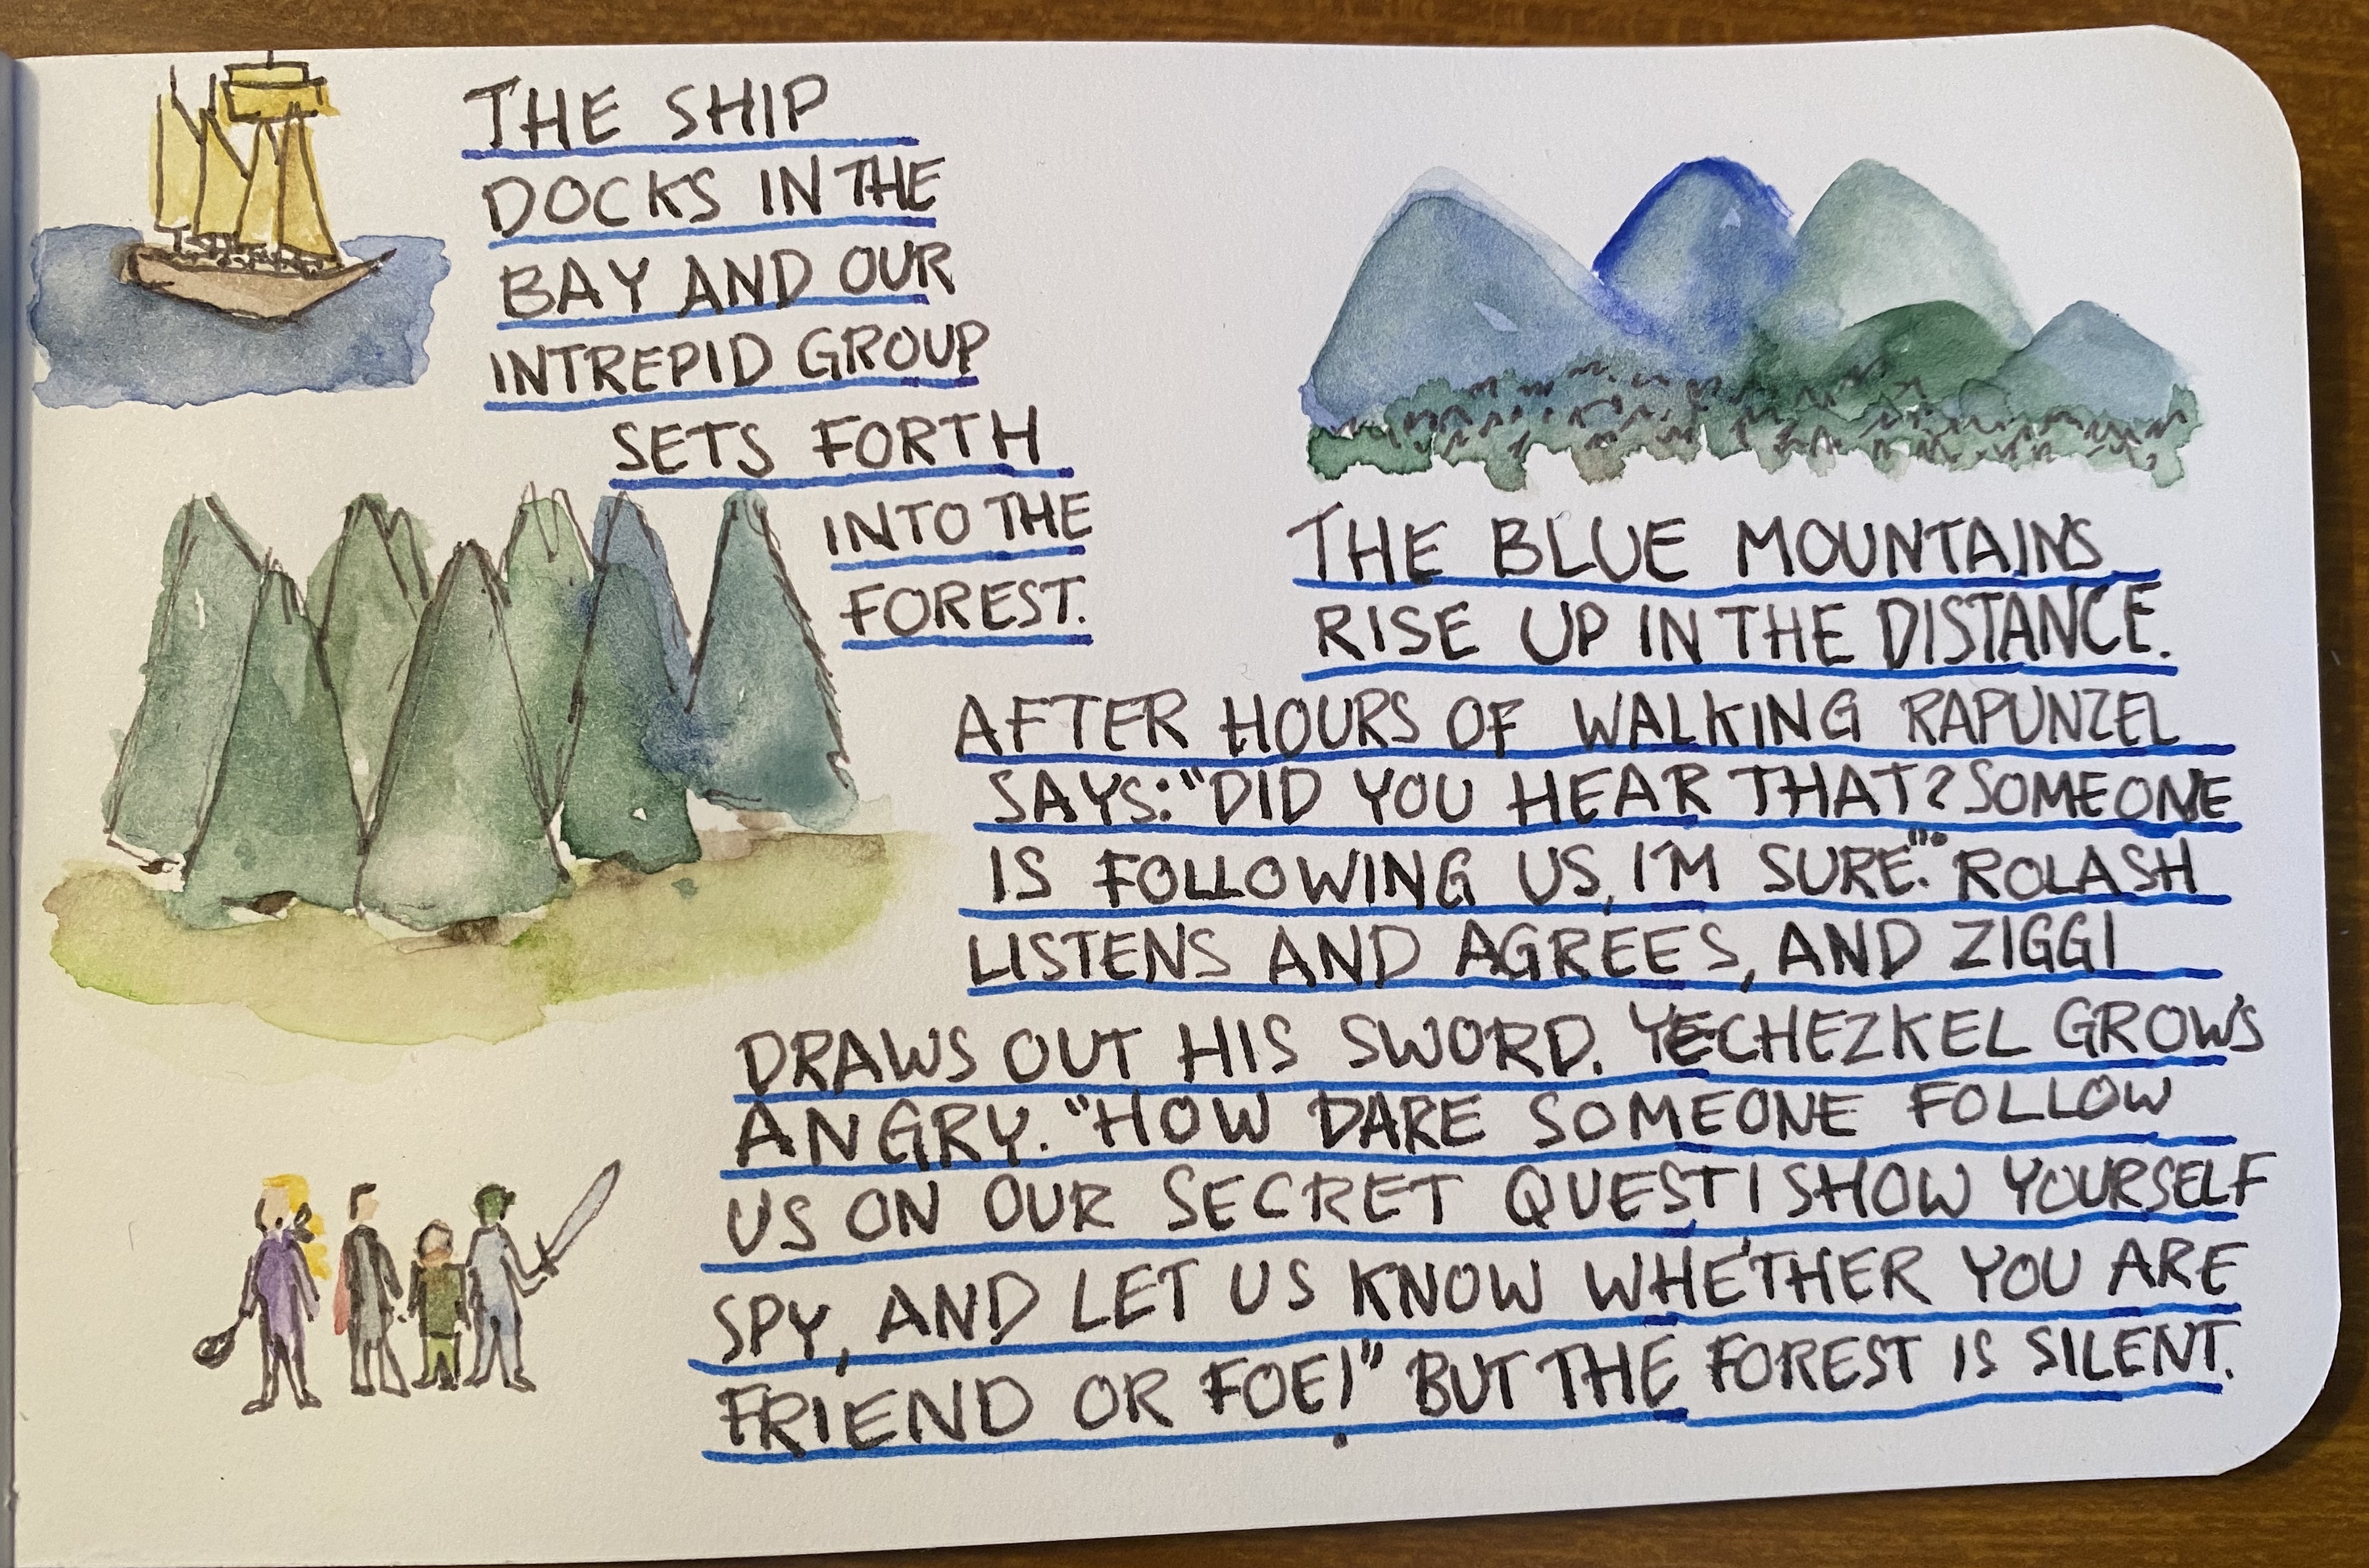 THE SHIP
DOCKS IN THE
BAY AND OUR
INTREPID GROUP
SETS FORTH
INTO THE
FOREST.
THE BLUE MOUNTAINS
RISE UP IN THE DISTANCE.
AFTER HOURS OF WALKING RAPUNZEL
SAYS: "DID YOU HEAR THAT? SOMEONE
IS FOLLOWING US, I'M SURE." ROLASH
LISTENS AND AGREES, AND ZIGGI
DRAWS OUT HIS SWORD. YECHEZKEL GROWS
ANGRY. "HOW DARE SOMEONE FOLLOW
US ON OUR SECRET QUEST! SHOW YOURSELF
SPY, AND LET US KNOW WHETHER YOU ARE
FRIEND OR FOE!" BUT THE FOREST IS SILENT.